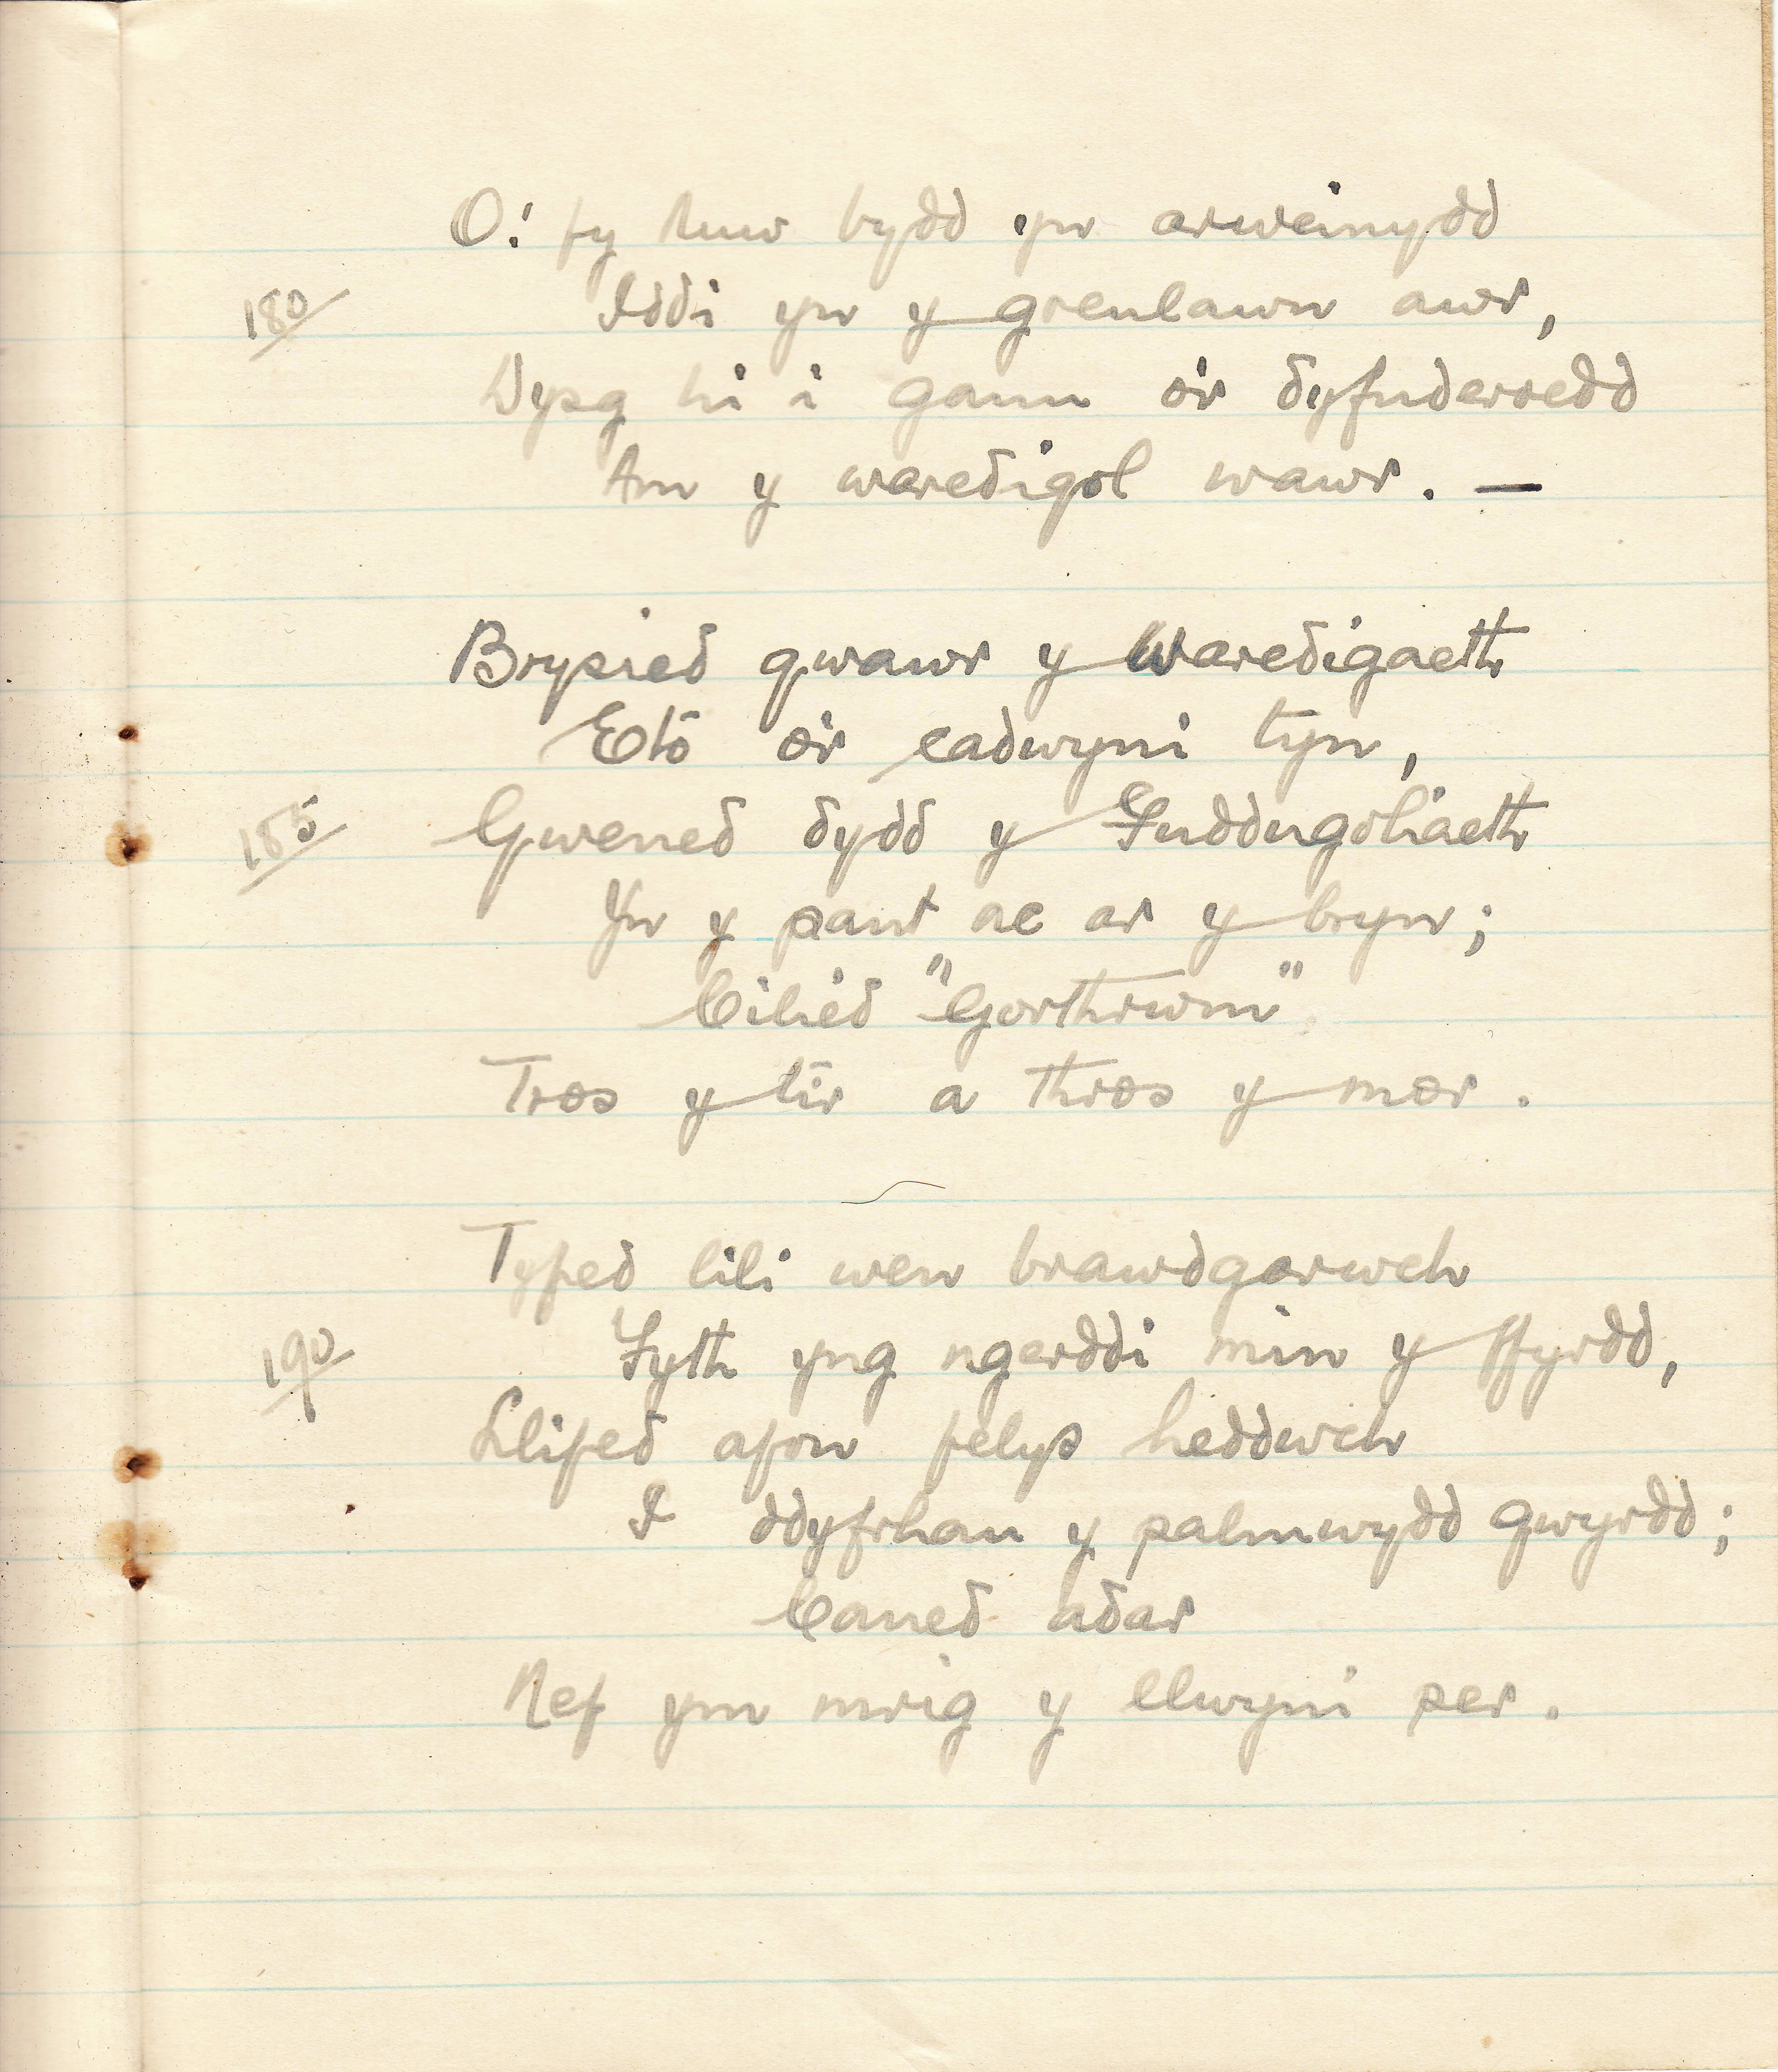 O! fy Nuw bydd yn arweinydd
180 Iddi yn y greulawn awr,
Dysg hi i ganu o'r dyfnderoedd
Am y waredigol wawr. —
Brysied gwawr y Waredigaeth
Etô o'r cadwyni tyn,
185 Gwened dydd y Fuddugoliaeth
Yn y pant ac ar y bryn;
Cilied "Gorthrwm"
Tros y tir a thros y mor.
Tyfed lili wen brawdgarwch
190 Fyth yng ngerddi min y ffyrdd,
Llifed afon felys heddwch
I ddyfrhau y palmwydd gwyrdd;
Caned adar
Nef ym mrig y llwyni per.